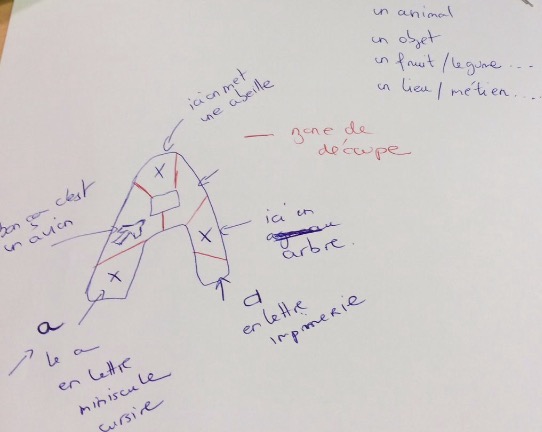 un animal
un objet
un fruit / légume ...
un lieu / métier ....
ici on met
une abeille
zone de
découpe
bon ça c'est
un avion
ici un
arbre.
a
le a
en lettre
miniscule
cursive
a
en lettre
imprimerie